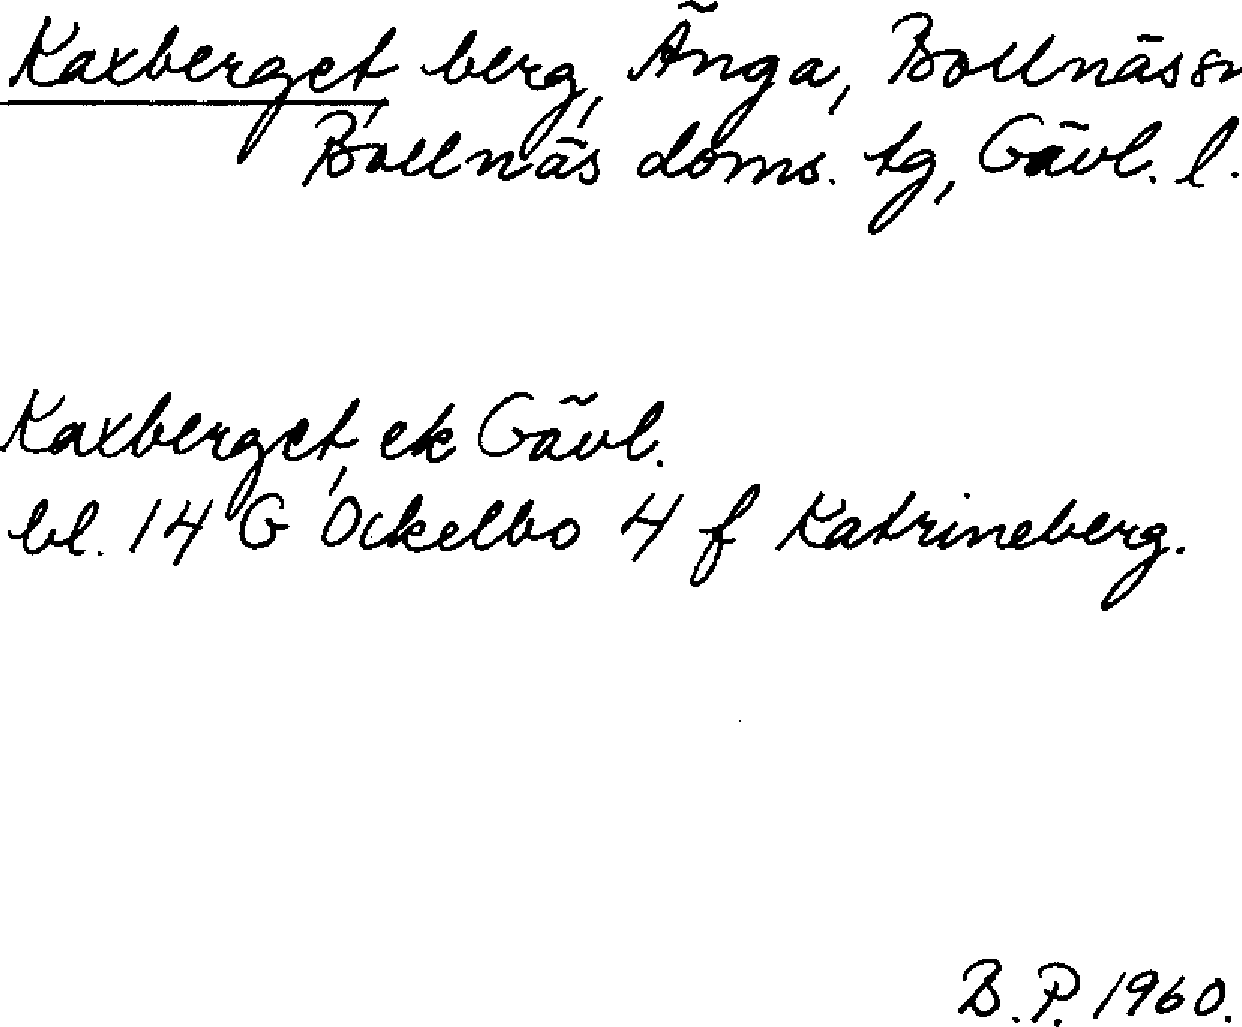 Kaxberget, berg, Änga, Bollnäs sn
Bollnäs doms. tg, Gävl. l.
Kaxberget, ek Gävl.
bl. 14 G Ockelbo 4 f Katrineberg.
B.P. 1960.